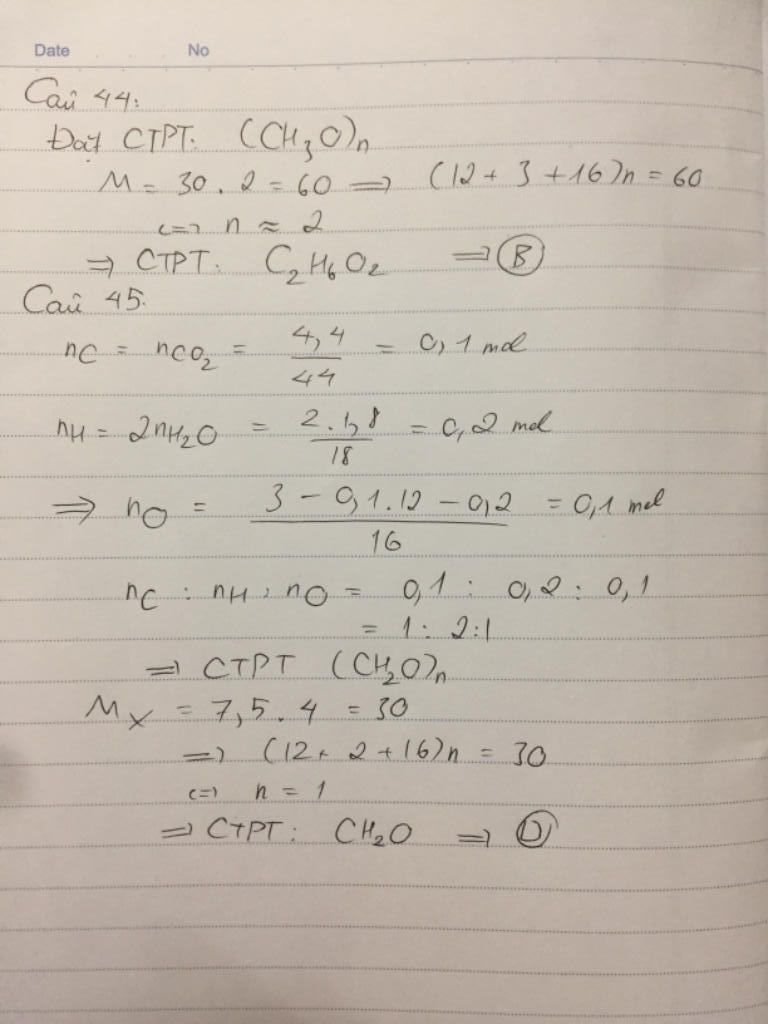 Date No
Câu 44:
Đặt CTPT: (CH3O)n
M = 30 . 2 = 60 => (12 + 3 + 16)n = 60
<=> n ≈ 2
=> CTPT: C2H6O2 => B
Câu 45.
nC = nCO2 = 4,4/44 = 0,1 mol
nH = 2nH2O = 2.1,8/18 = 0,2 mol
=> nO = 3 - 0,1.12 - 0,2/16 = 0,1 mol
nC : nH : nO = 0,1 : 0,2 : 0,1
= 1 : 2 : 1
=> CTPT (CH2O)n
MX = 7,5 . 4 = 30
=> (12 + 2 + 16)n = 30
<=> n = 1
=> CTPT: CH2O => D